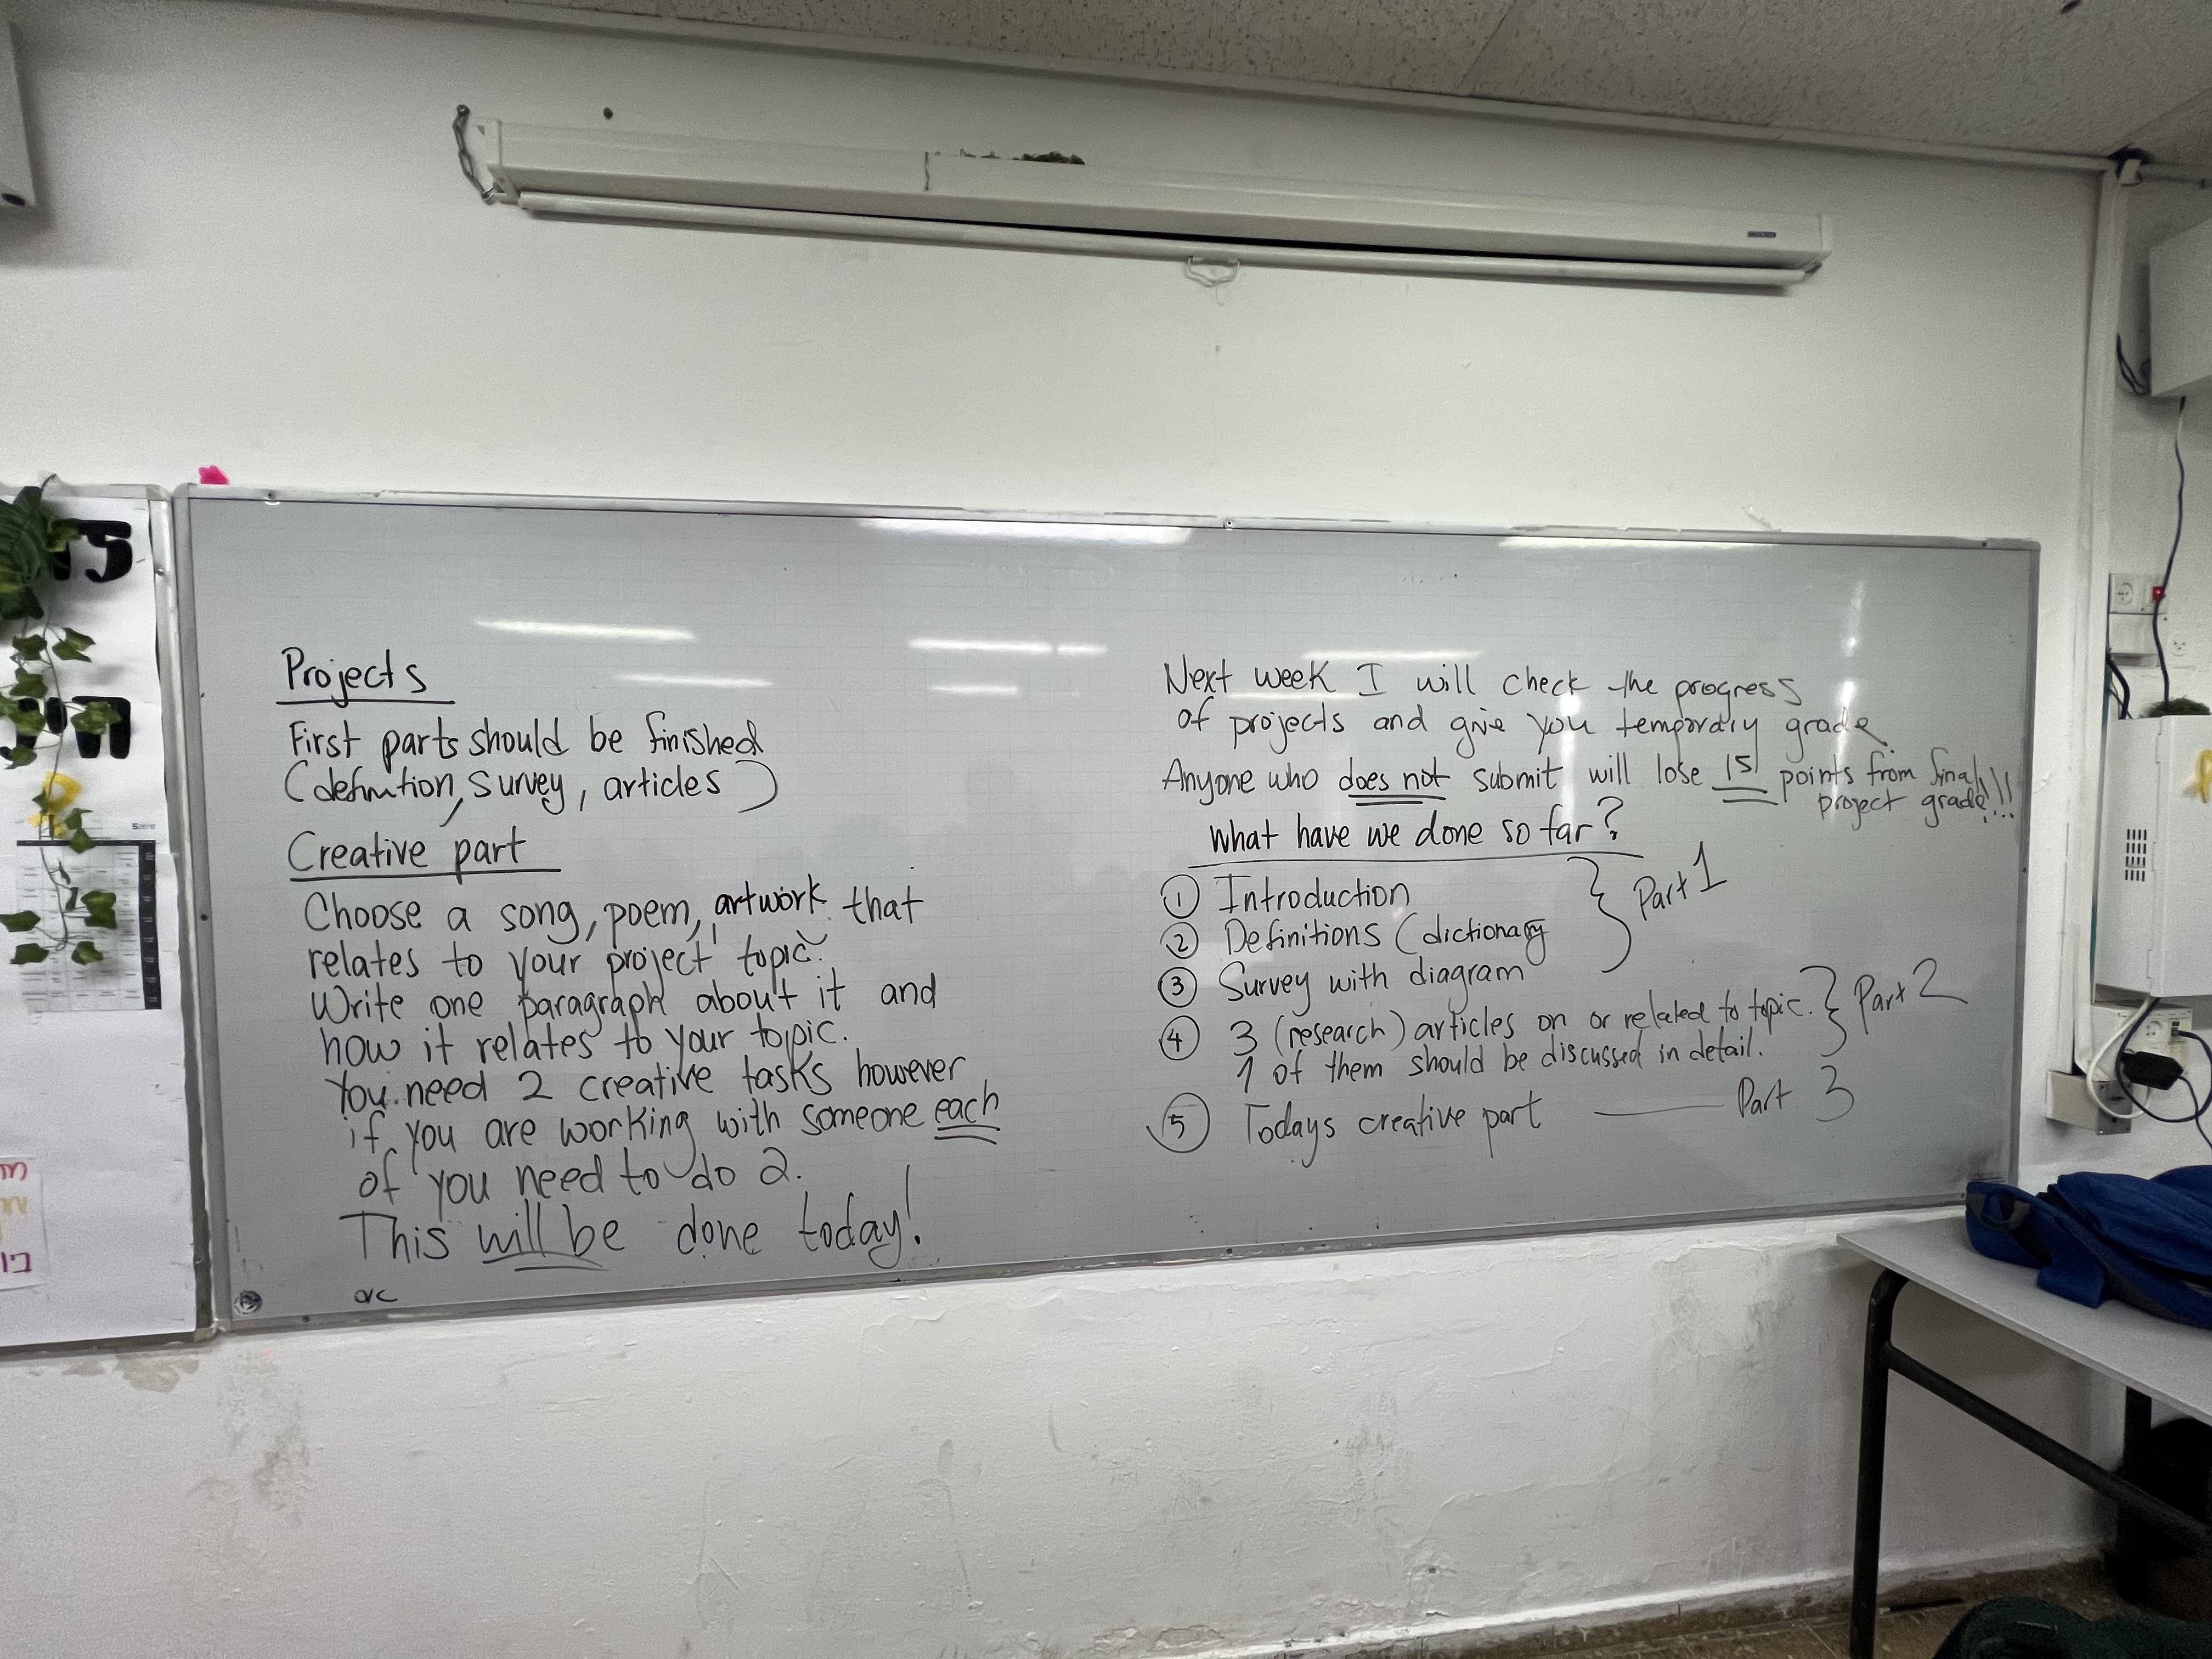 Projects
First parts should be finished
(definition, survey, articles)
Creative part
Choose a song, poem, artwork that
relates to your project topic.
Write one paragraph about it and
how it relates to your topic.
You need 2 creative tasks however
if you are working with someone each
of you need to do 2.
This will be done today!
Next week I will check the progress
of projects and give you temporary grade
Anyone who does not submit will lose 15 points from final
project grade!!!
What have we done so far?
① Introduction
② Definitions (dictionary
③ Survey with diagram
} Part 1
④ 3 (research) articles on or related to topic.
1 of them should be discussed in detail.
} Part 2
⑤ Todays creative part — Part 3